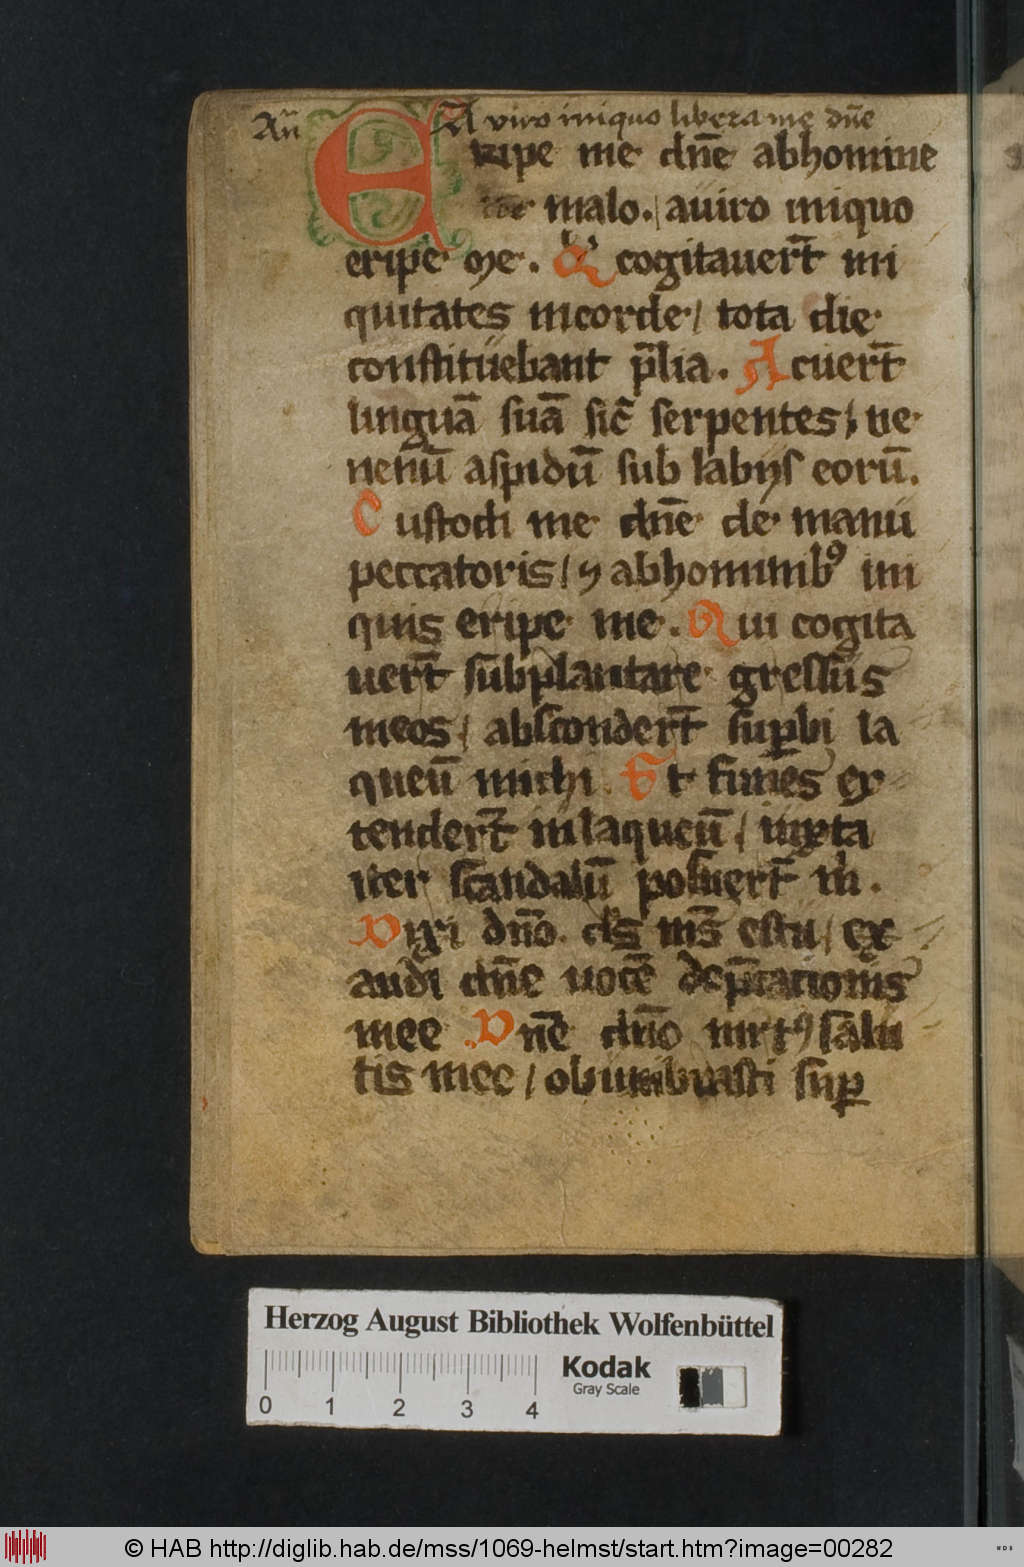 Añ A viro iniquo libera me dñe
Eripe me dñe abhomine
malo. auiro iniquo
eripe me. Q̇ cogitauert̄ ini
quitates incorde / tota die
constituebant p̄lia. Acuert̄
linguā suā sic̄ serpentes / ue
nenū aspidū sub labijs eorū.
Custodi me dñe de manu
peccatoris / ⁊ abhominibꝰ ini
quis eripe me. Qui cogita
uert̄ subplantare gressus
meos / absconderт̄ supbi la
queū michi. Et funes ex
tendert̄ inlaqueū / iuxta
iter scandalū posuert̄ m̍.
Dixi dño. ds̄ ms̄ estu / ex
audi dñe uocē dep̄cationis
mee Dñe dño uirtꝰ salu
tis mee / obumbrasti suꝑ
Herzog August Bibliothek Wolfenbüttel
Kodak
Gray Scale
0 1 2 3 4
© HAB http://diglib.hab.de/mss/1069-helmst/start.htm?image=00282